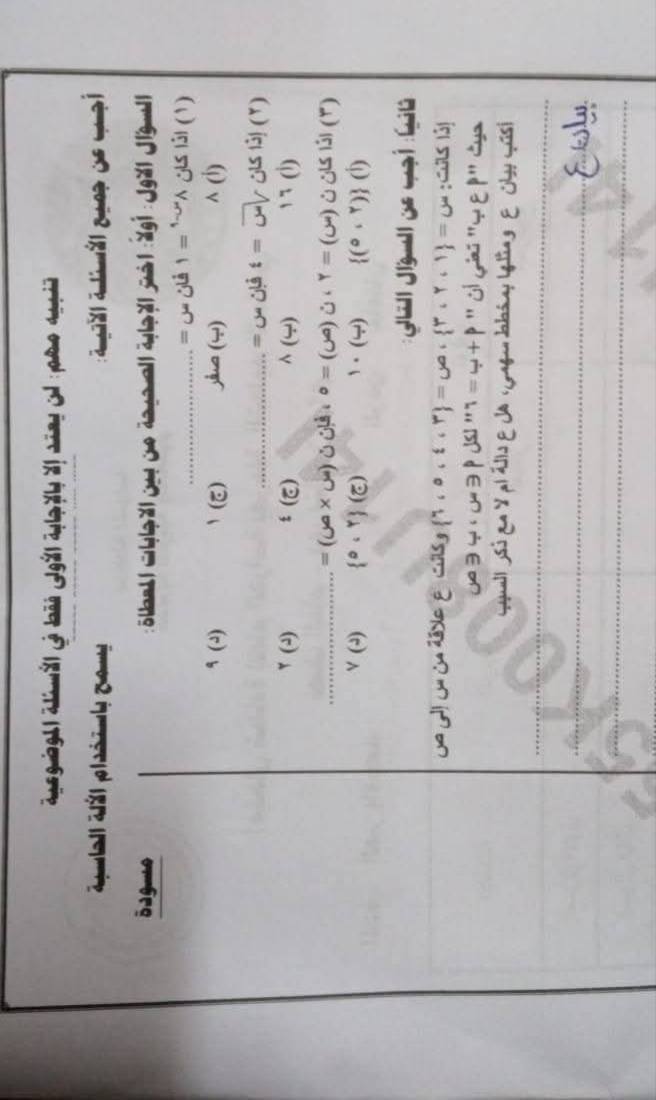 تنبيه مهم: لن يعتد إلا بالإجابة الأولى فقط في الأسئلة الموضوعية
أجب عن جميع الأسئلة الآتية:
يسمح باستخدام الآلة الحاسبة
السؤال الأول: أولاً: اختر الإجابة الصحيحة من بين الإجابات المعطاة:
مسودة
(١) إذا كان ٨س-٩ = ١ فإن س = ....................
(أ) ٨ (ب) صفر (ج) ١ (د) ٩
(٢) إذا كان √س = ٤ فإن س = ....................
(أ) ١٦ (ب) ٨ (ج) ٤ (د) ٢
(٣) إذا كان ن (س) = ٢ ، ن (ص) = ٥ ، فإن ن (س × ص) = ....................
(أ) {(٢ ، ٥)} (ب) ١٠ (ج) {٢ ، ٥} (د) ٧
ثانياً: أجب عن السؤال التالي:
إذا كانت: س = {١ ، ٢ ، ٣} ، ص = {٣ ، ٤ ، ٥ ، ٦} وكانت ع علاقة من س إلى ص
حيث "أ ع ب" تعنى أن "أ + ب = ٦" لكل أ ∈ س ، ب ∈ ص
أكتب بيان ع ومثلها بمخطط سهمي، هل ع دالة أم لا مع ذكر السبب
بيان ع